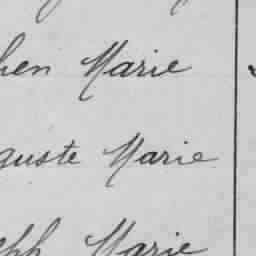 hen Marie
guste Marie
eph Marie